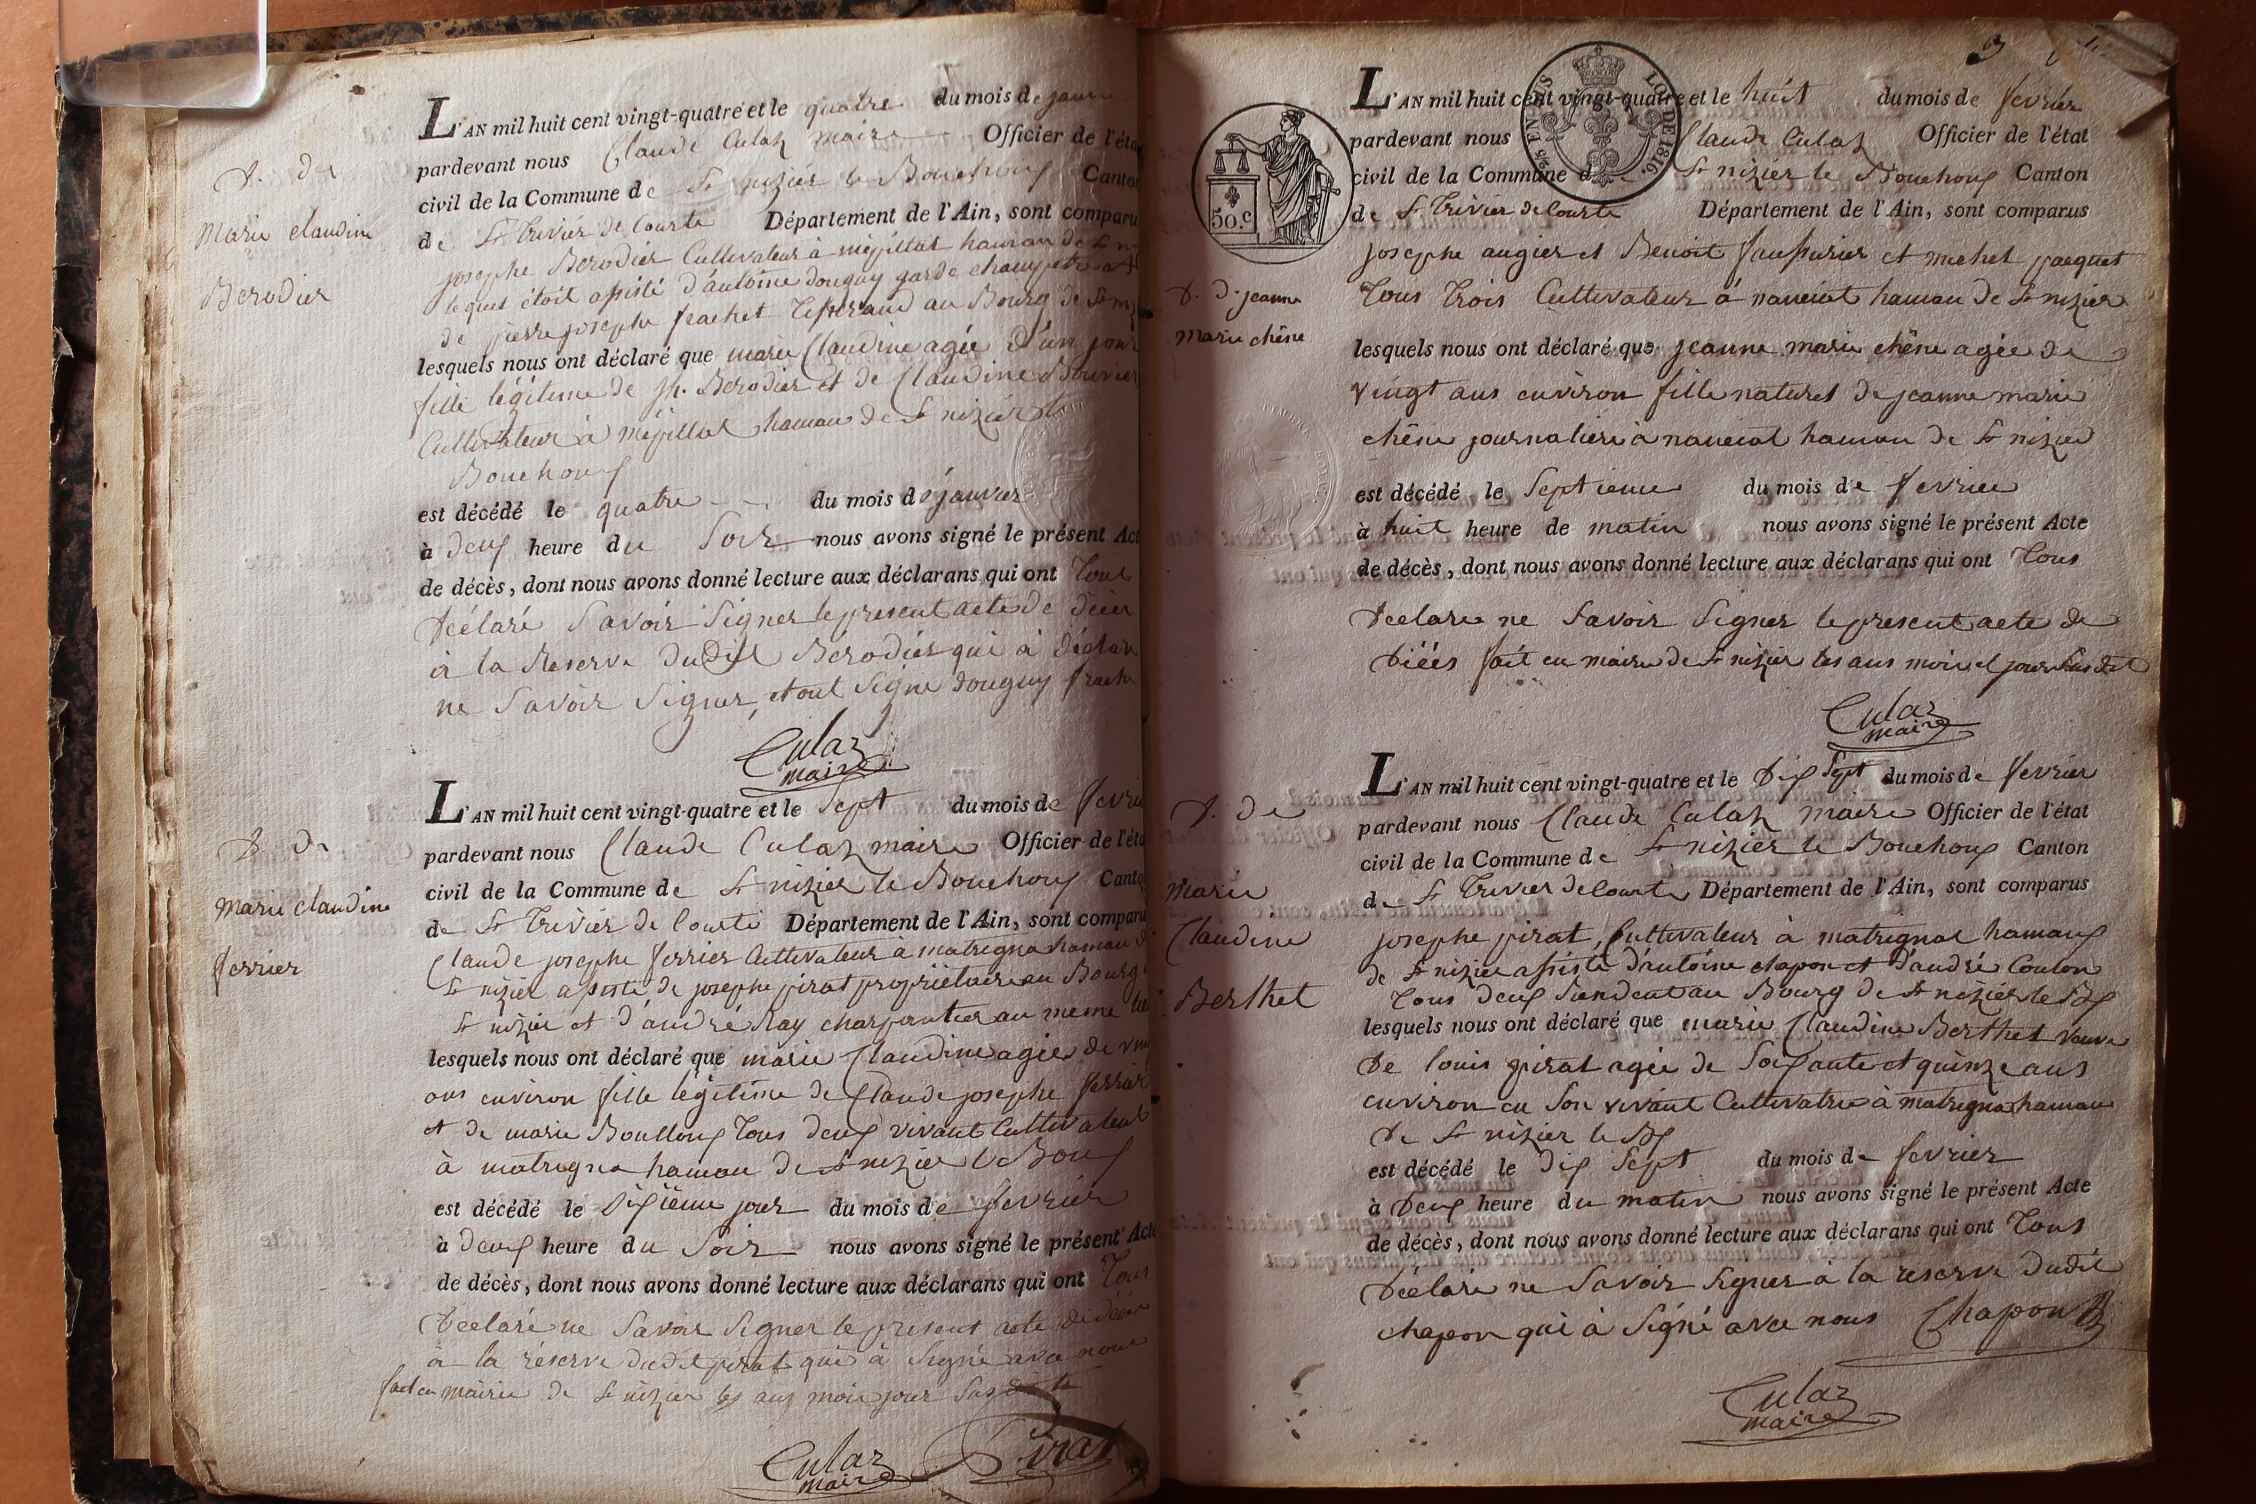 D. de
Marie claudine
Berodier
L'AN mil huit cent vingt-quatre et le quatre du mois de janv
pardevant nous Claude Culaz maire Officier de l'éta
civil de la Commune de St nizier le Bouchoux Canton
de St trivier de Courte Département de l'Ain, sont comparu
josephe Berodier Cultivateur à mépillat hamau de St
lequel étoit assisté d'antoine douguy garde champetre et
de pierre josephe frachet Tisserand au Bourg de St niz
lesquels nous ont déclaré que marie Claudine agée d'un jour
fille légitime de jh. Berodier et de Claudine Bouvier
Cultivateur à mépillat hamau de St nizier le
Bouchoux
est décédé le quatre du mois de janvier
à deux heure du Soir nous avons signé le présent Act
de décès, dont nous avons donné lecture aux déclarans qui ont Tous
Déclaré Savoir Signer le present acte de décer
à la Reserve Dudit Berodier qui à déclaré
ne Savoir Signer, et ont Signé douguy frache
Culaz
maire
D. de
Marie claudine
ferrier
L'AN mil huit cent vingt-quatre et le Sept du mois de fevrie
pardevant nous Claude Culaz maire Officier de l'éta
civil de la Commune de St nizier le Bouchoux Canto
de St Trivier de Courte Département de l'Ain, sont comparu
Claude josephe ferrier Cultivateur à matregna hamau d
St nizier assisté de josephe pirat propriétaire au Bourg
St nizier et d'andré Ray charpentier au meme lieu
lesquels nous ont déclaré que marie Claudine agée de
ans environ fille légitime de Claude josephe ferrier
et de marie Boulloux Tous deux vivant Cultivateur
à matregna hamau de St nizier le Boux
est décédé le Sixième jour du mois de fevrier
à deux heure du Soir nous avons signé le présent Acte
de décès, dont nous avons donné lecture aux déclarans qui ont Tous
Déclaré ne Savoir Signer le present acte de décès
à la réserve dudit pirat qui à Signé avec nous
fait en mairie de St nizier les ans mois jour Susdite
Culaz
maire
Pirat
3
EN SUS
LOI DE 1816.
50.c
D. de jeanne
marie chêne
L'AN mil huit cent vingt-quatre et le huit du mois de fevrier
pardevant nous Claude Culaz Officier de l'état
civil de la Commune de St nizier le Bouchoux Canton
de St Trivier de Courte Département de l'Ain, sont comparus
josephe augier et Benoit faussurier et michel pacquet
Tous Trois Cultivateur à nanciat hamau de St nizier
lesquels nous ont déclaré que jeanne marie chêne agée de
vingt ans environ fille naturel de jeanne marie
chêne journaliere à nanciat hamau de St nizier
est décédé le Septieme du mois de fevrier
à huit heure de matin nous avons signé le présent Acte
de décès, dont nous avons donné lecture aux déclarans qui ont Tous
Déclaré ne Savoir Signer le present acte de
Décés fait en mairie de St nizier les ans mois et jour Sus dit
Culaz
maire
D. de
Marie
Claudine
Berthet
L'AN mil huit cent vingt-quatre et le Dix Sept du mois de fevrier
pardevant nous Claude Culaz maire Officier de l'état
civil de la Commune de St nizier le Bouchoux Canton
de St Trivier de Courte Département de l'Ain, sont comparus
josephe pirat, Cultivateur à matregnat hamaux
de St nizier assisté d'antoine chapon et d'andré Coulon
Tous deux Résident au Bourg de St nizier le Bx
lesquels nous ont déclaré que marie Claudine Berthet vauve
De louis pirat agée de Soixante et quinze ans
environ en Son vivant Cultivatrice à matregna hamau
De St nizier le Bx
est décédé le dix Sept du mois de fevrier
à Deux heure du matin nous avons signé le présent Acte
de décès, dont nous avons donné lecture aux déclarans qui ont Tous
Déclaré ne Savoir Signer à la reserve dudit
chapon qui à Signé avec nous Chapon
Culaz
maire